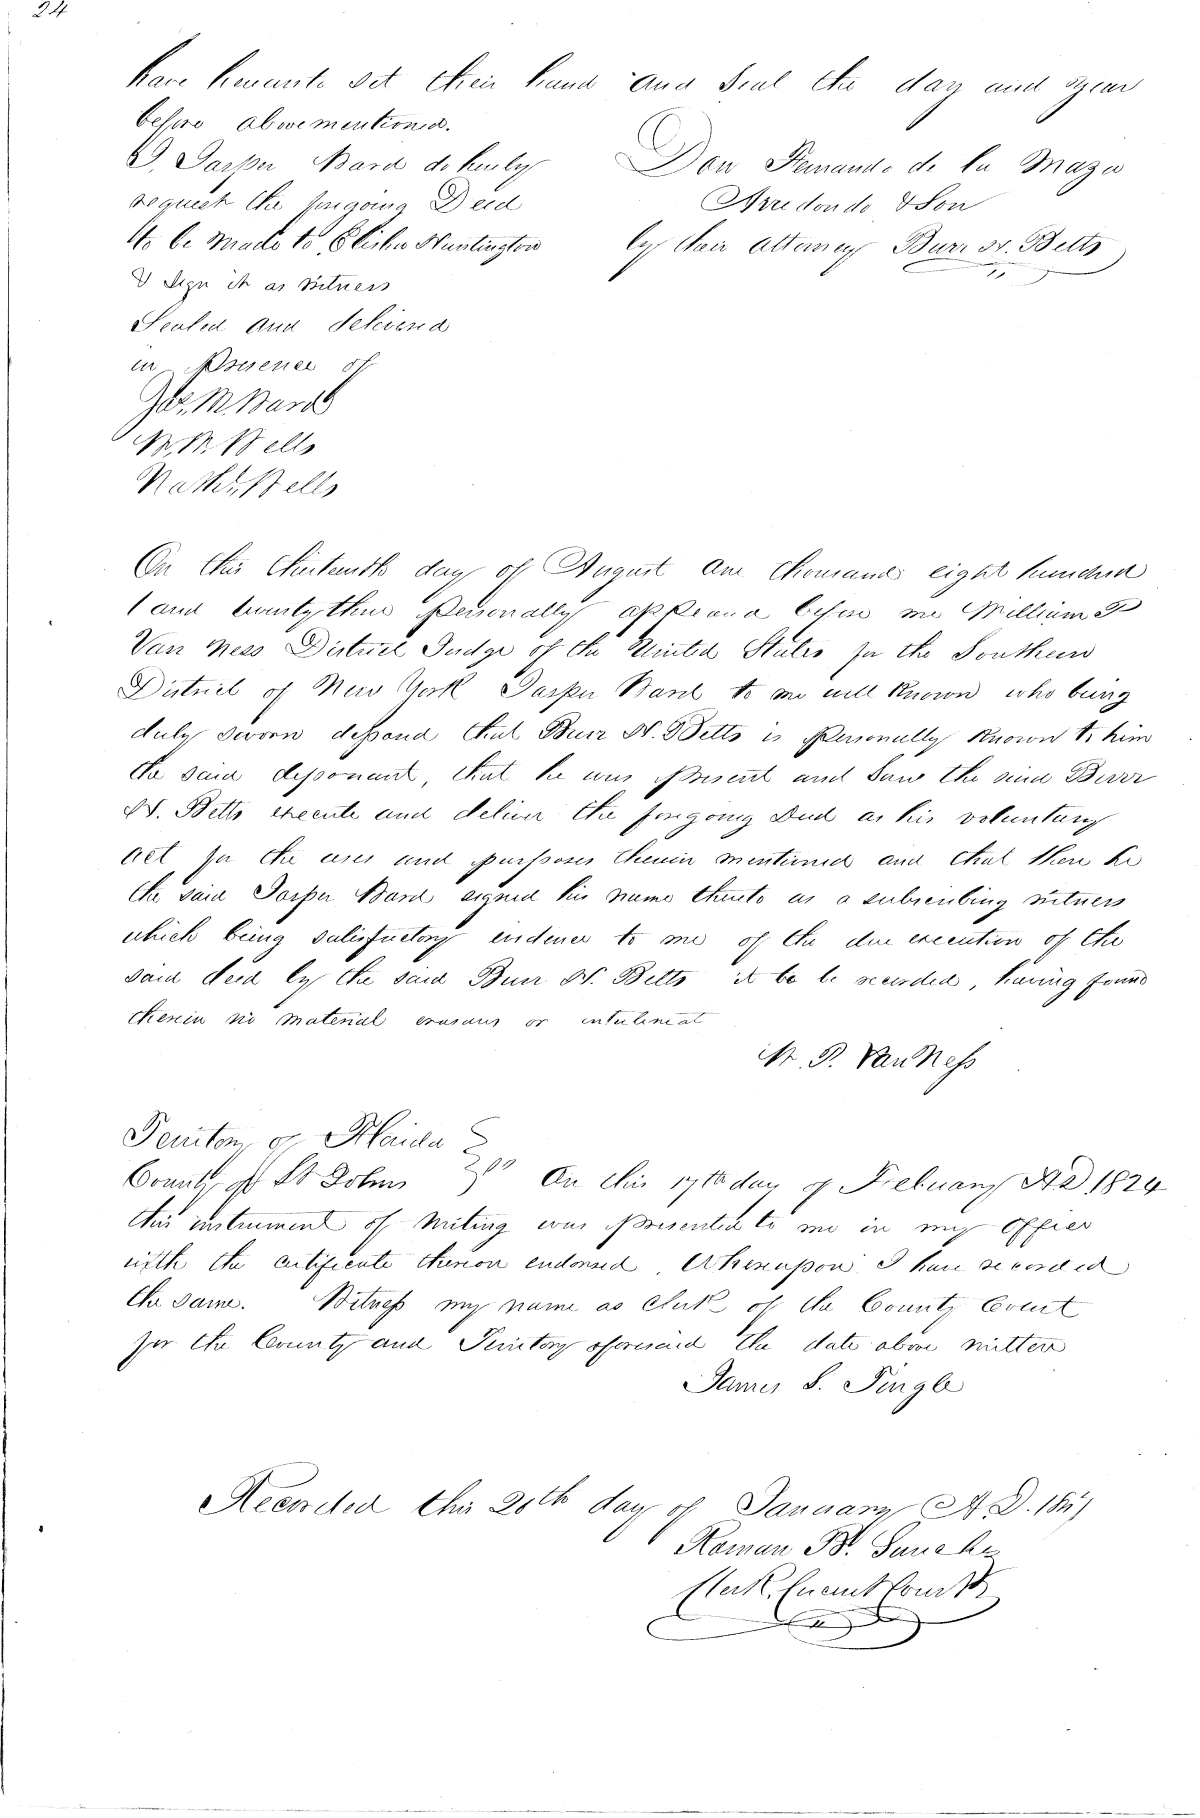 24
have hereunto set their hand and Seal the day and year
before abovementioned.
I, Jasper Ward do hereby
request the forgoing Deed
to be made to Elisha Huntington
& sign it as witness
Sealed and delivered
in Presence of
Jas. M. Ward
W. W. Wells
Nathl. Wells
Don Fernando de la Maza
Arredondo & Son
by their attorney Burr N. Betts
On this thirteenth day of August one thousand eight hundred
and twenty three Personally appeared before me William P
Van Ness District Judge of the United States for the Southern
District of New York Jasper Ward to me well Known who being
duly sworn depond that Burr N. Betts is Personally Known to him
the said deponant, that he was Present and Saw the said Burr
N. Betts execute and deliver the forgoing Deed as his voluntary
act for the uses and purposes therein mentioned and that there he
the said Jasper Ward signed his name thereto as a subscribing witness
which being satisfactory evidence to me of the due execution of the
said deed by the said Burr N. Betts it to be recorded, having found
therein no material erasures or
W. P. Van Ness
Territory of Florida
County of St Johns On this 17th day of February A D 1824
this instrument of writing was Presented to me in my Office
with the certificate thereon endorsed, Whereupon I have recorded
the same. Witness my name as Clerk of the County Court
for the County and Territory aforesaid the date above written
James S. Tingle
Recorded this 20th day of January A. D.
Roman B. Sanchez
Clerk, Circuit Court